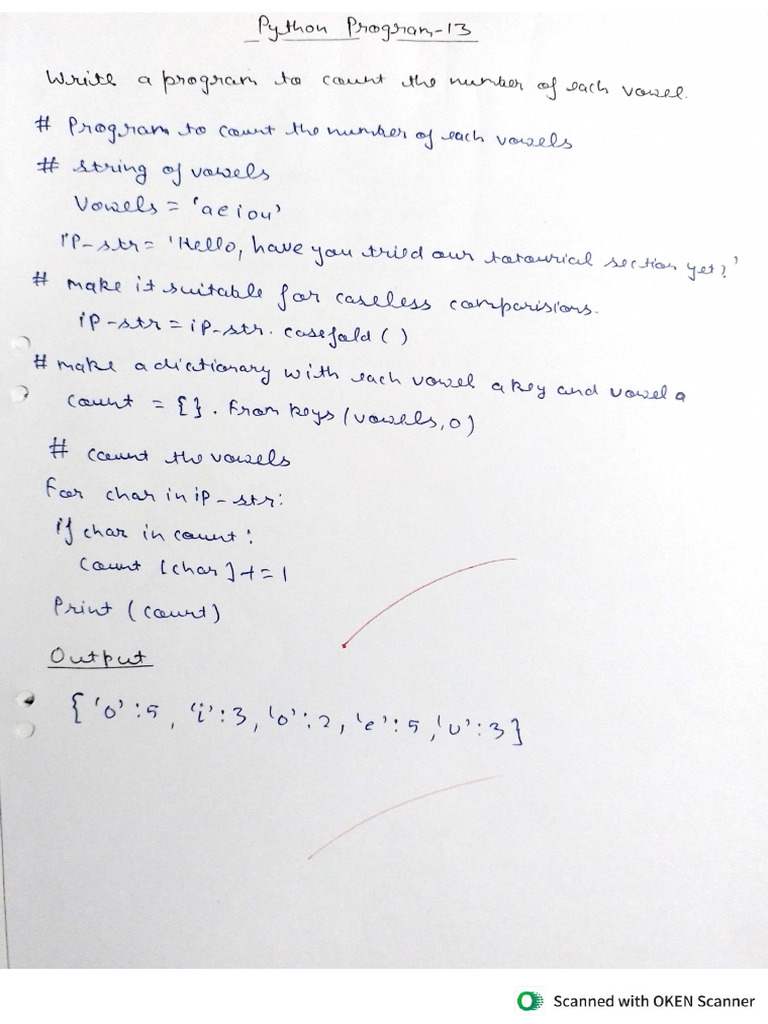 Python Program-13
Write a program to count the number of each vowel.
# Program to count the number of each vowels
# string of vowels
Vowels = 'aeiou'
ip-str = 'Hello, have you tried our totourial section yet?'
# make it suitable for caseless comparisions.
ip-str = ip-str. casefold ( )
# make a dictionary with each vowel a key and vowel a
count = { }. from keys (vowels, 0)
# count the vowels
For char in ip-str:
if char in count:
count [char] += 1
Print (count)
Output
{'o':5, 'i':3, 'o':2, 'e':5, 'u':3}
Scanned with OKEN Scanner